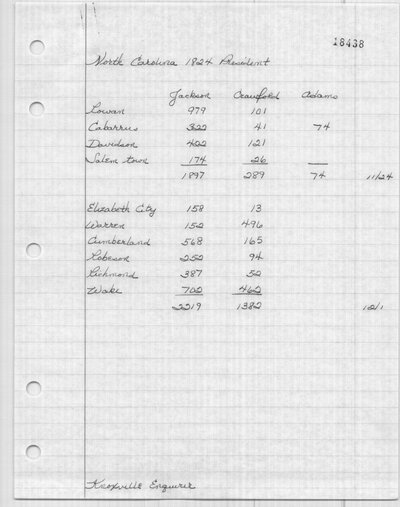 18438
North Carolina 1824 President
Jackson Crawford Adams
Rowan 979 101
Cabarrus 322 41 74
Davidson 422 121
Salem town 174 26
1897 289 74 11/24
Elizabeth City 158 13
Warren 152 496
Cumberland 568 165
Robeson 252 94
Richmond 387 52
Wake 702 462
2219 1382 12/1
Knoxville Enquirer